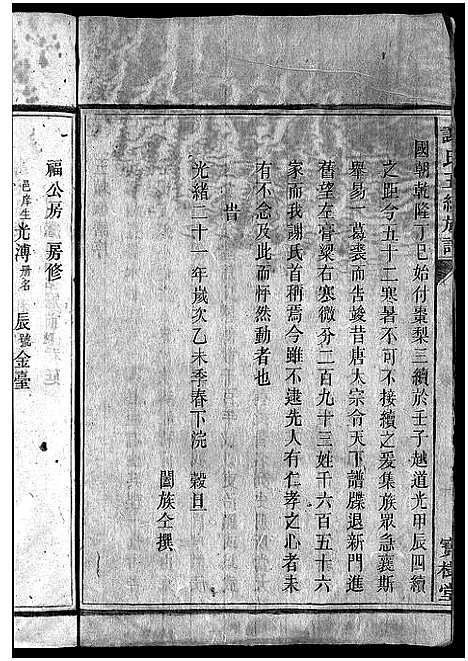 謝氏五續族譜
寶樹堂
國朝乾隆丁巳始付棗梨三續於壬子越道光甲辰四續
之距今五十二寒暑不可不接續之爰集族眾急襄斯
舉易一葛裘而告竣昔唐太宗令天下譜牒退新門進
舊望左膏粱右寒微分二百九十三姓千六百五十六
家而我謝氏首稍焉今雖不逮先人有仁孝之心者未
有不念及此而怦然動者也
旹
光緒二十一年歲次乙未季春下浣 穀旦
闔族仝撰
福公房 房修
邑庠生光溥册名 辰號金臺